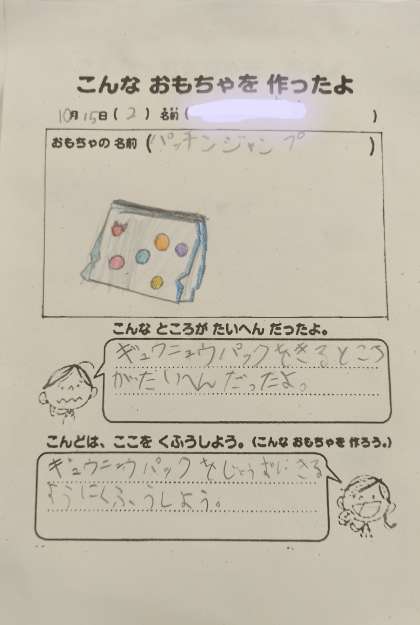 こんな おもちゃを 作ったよ
10月 15日 ( 2 ) 名前 ( )
おもちゃの 名前 (パッチンジャンプ)
こんな ところが たいへん だったよ。
ギュウニュウパックをきるところ
がたいへんだったよ。
こんどは、ここを くふうしよう。(こんな おもちゃを 作ろう。)
ギュウニュウパックをじょうずにきる
ようにくふうしよう。